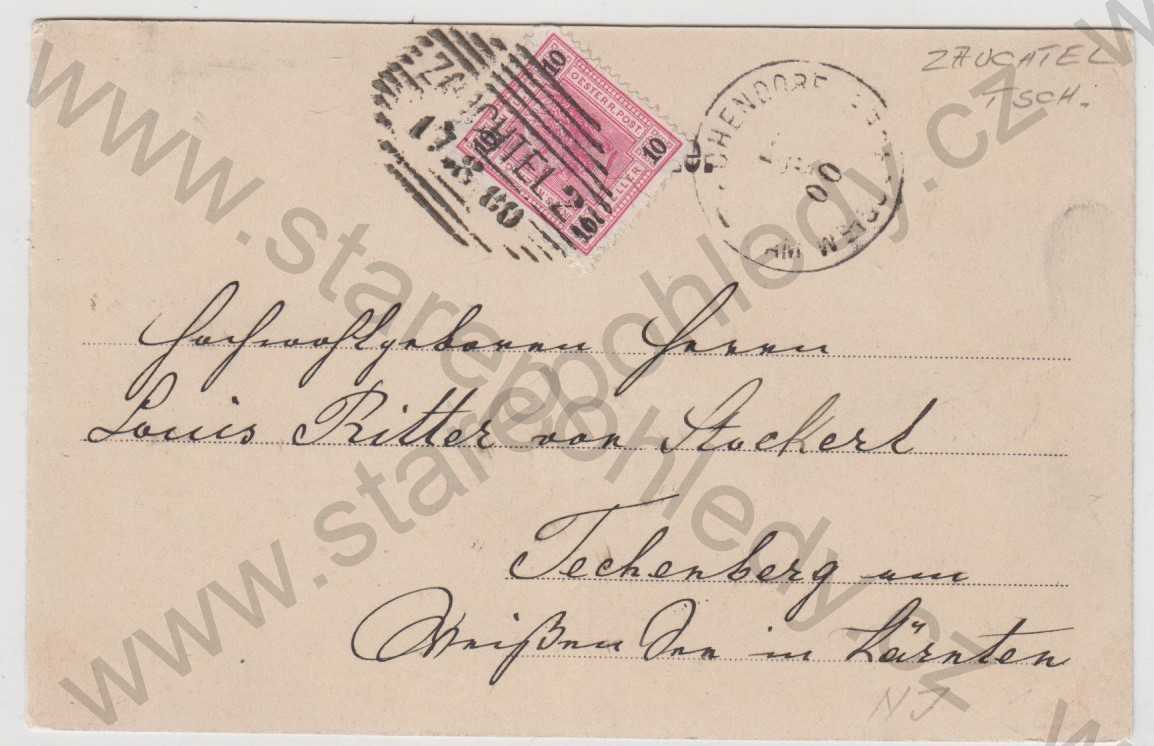 ZAUCHTEL 2
17 8 00
10
10
10
OESTERR. POST.
HELLER
00
ZAUCATEL
TSCH.
Hochwohlgeboren Herrn
Louis Ritter von Stockert
Techenberg am
Weißen See in Kärnten
NJ
www.starepohledy.cz
www.starepohledy.cz